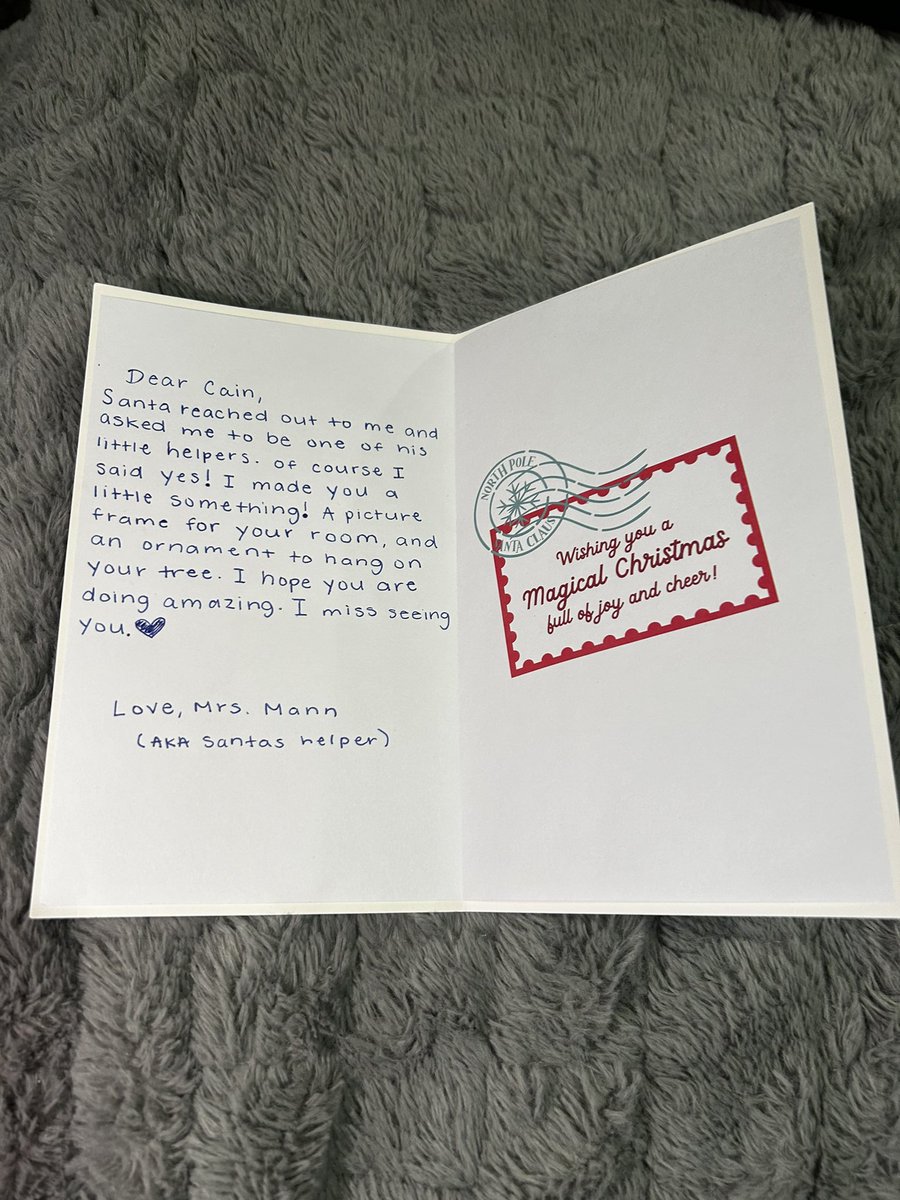 Dear Cain,
Santa reached out to me and
asked me to be one of his
little helpers. Of course I
said yes! I made you a
little something! A picture
frame for your room, and
an ornament to hang on
your tree. I hope you are
doing amazing. I miss seeing
you.
Love, Mrs. Mann
(AKA Santas helper)
NORTH POLE
SANTA CLAUS
Wishing you a
Magical Christmas
full of joy and cheer!